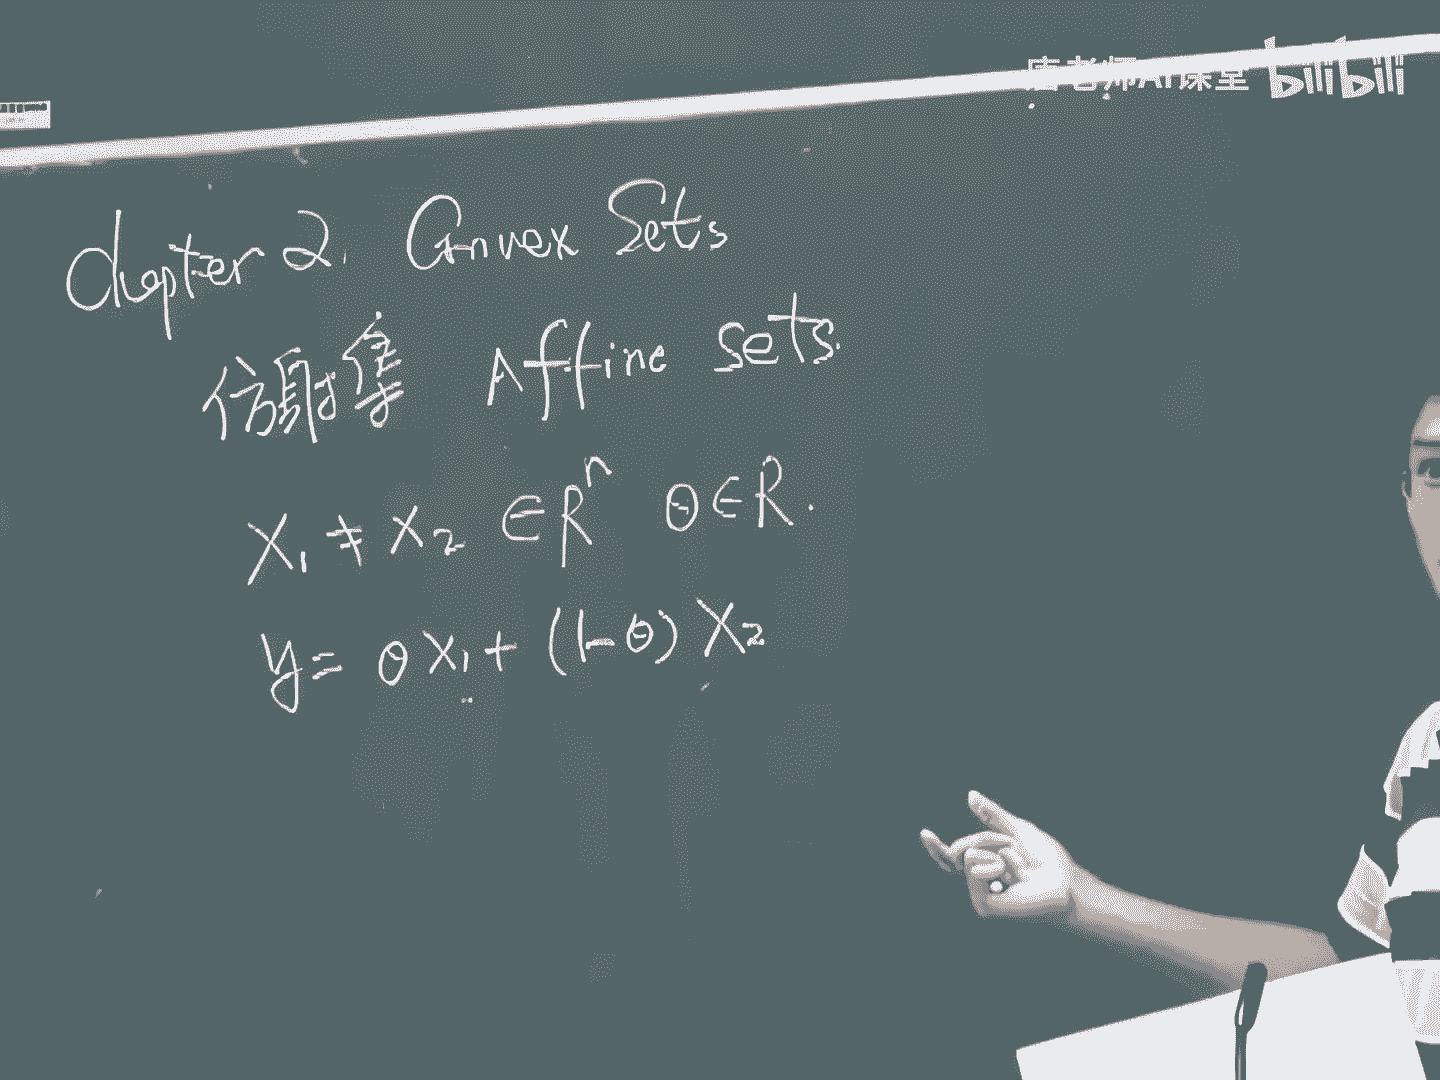 唐老师AI课堂 bilibili
Chapter 2. Convex Sets
仿射集 Affine sets.
X₁ ≠ X₂ ∈ Rⁿ θ ∈ R.
y = θX₁ + (1-θ) X₂